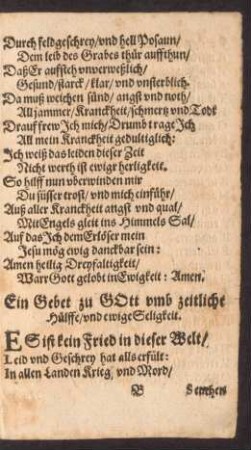 Durch feldgeschrey/vnd hell Posaun/
Dem leib des Grabes thür auffthun/
Daß Er auffsteh vnverweßlich/
Gesund/starck/klar/vnd vnsterblich.
Da muß weichen sünd/angst vnd noth/
All jammer/Kranckheit/schmertz vnd Todt
Drauf frew Jch mich/Drumb trage Jch
All mein Kranckheit gedultiglich:
Jch weiß das leiden dieser Zeit
Nicht werth ist ewigr herligkeit.
So hilff nun vberwinden mir
Du süsser trost/ vnd mich einführ/
Auß aller Kranckheit angst vnd qual/
Mit Engels gleit ins Himmels Sal/
Auf das Jch dem Erlöser mein
Jesu mög ewig danckbar sein:
Amen heilig Dreyfaltigkeit/
War Gott gelobt in Ewigkeit: Amen.
Ein Gebet zu GOtt vmb zeitliche
Hülffe/vnd ewige Seligkeit.
ES ist kein Fried in dieser Welt/
Leid vnd Geschrey hat alls erfült:
In allen Landen Krieg vnd Mord/
B